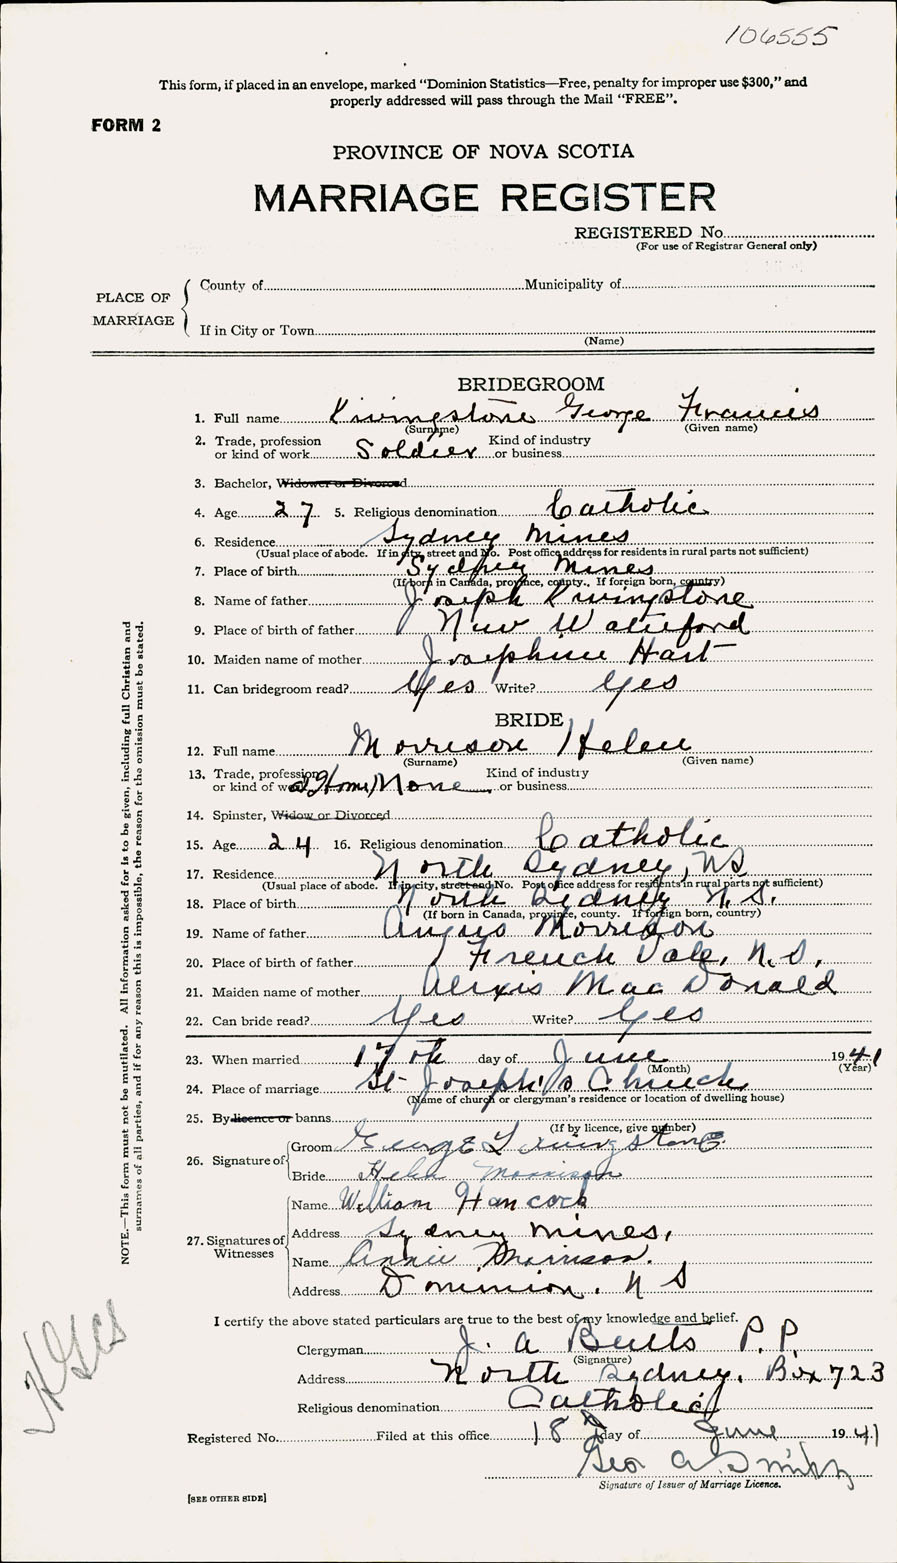 106555
This form, if placed in an envelope, marked "Dominion Statistics—Free, penalty for improper use $300," and
properly addressed will pass through the Mail "FREE".
FORM 2
PROVINCE OF NOVA SCOTIA
MARRIAGE REGISTER
REGISTERED No.
(For use of Registrar General only)
PLACE OF MARRIAGE
County of Municipality of
If in City or Town
(Name)
BRIDEGROOM
1. Full name Livingstone George Francis
(Surname) (Given name)
2. Trade, profession or kind of work Soldier Kind of industry or business
3. Bachelor, Widower or Divorced
4. Age 27 5. Religious denomination Catholic
6. Residence Sydney Mines
(Usual place of abode. If in city, street and No. Post office address for residents in rural parts not sufficient)
7. Place of birth Sydney Mines
(If born in Canada, province, county. If foreign born, country)
8. Name of father Joseph Livingstone
9. Place of birth of father New Waterford
10. Maiden name of mother Josephine Hart
11. Can bridegroom read? Yes Write? Yes
BRIDE
12. Full name Morrison Helen
(Surname) (Given name)
13. Trade, profession or kind of work at Home) None Kind of industry or business
14. Spinster, Widow or Divorced
15. Age 24 16. Religious denomination Catholic
17. Residence North Sydney, NS
(Usual place of abode. If in city, street and No. Post office address for residents in rural parts not sufficient)
18. Place of birth North Sydney N.S.
(If born in Canada, province, county. If foreign born, country)
19. Name of father Angus Morrison
20. Place of birth of father French Vale, N.S.
21. Maiden name of mother Alexis MacDonald
22. Can bride read? Yes Write? Yes
23. When married 17th day of June 1941
(Month) (Year)
24. Place of marriage St Joseph's Church
(Name of church or clergyman's residence or location of dwelling house)
25. By licence or banns
(If by licence, give number)
26. Signature of Groom George Livingstone
Bride Helen Morrison
27. Signatures of Witnesses
Name William Hancock
Address Sydney Mines,
Name Annie Morrison.
Address Dominion, N S
I certify the above stated particulars are true to the best of my knowledge and belief.
Clergyman J. A Butts P.P.
(Signature)
Address North Sydney, Box 723
Religious denomination Catholic
Registered No. Filed at this office 18 day of June 1941
Geo A Smith
Signature of Issuer of Marriage Licence.
[SEE OTHER SIDE]
NOTE.—This form must not be mutilated. All information asked for is to be given, including full Christian and
surnames of all parties, and if for any reason this is impossible, the reason for the omission must be stated.